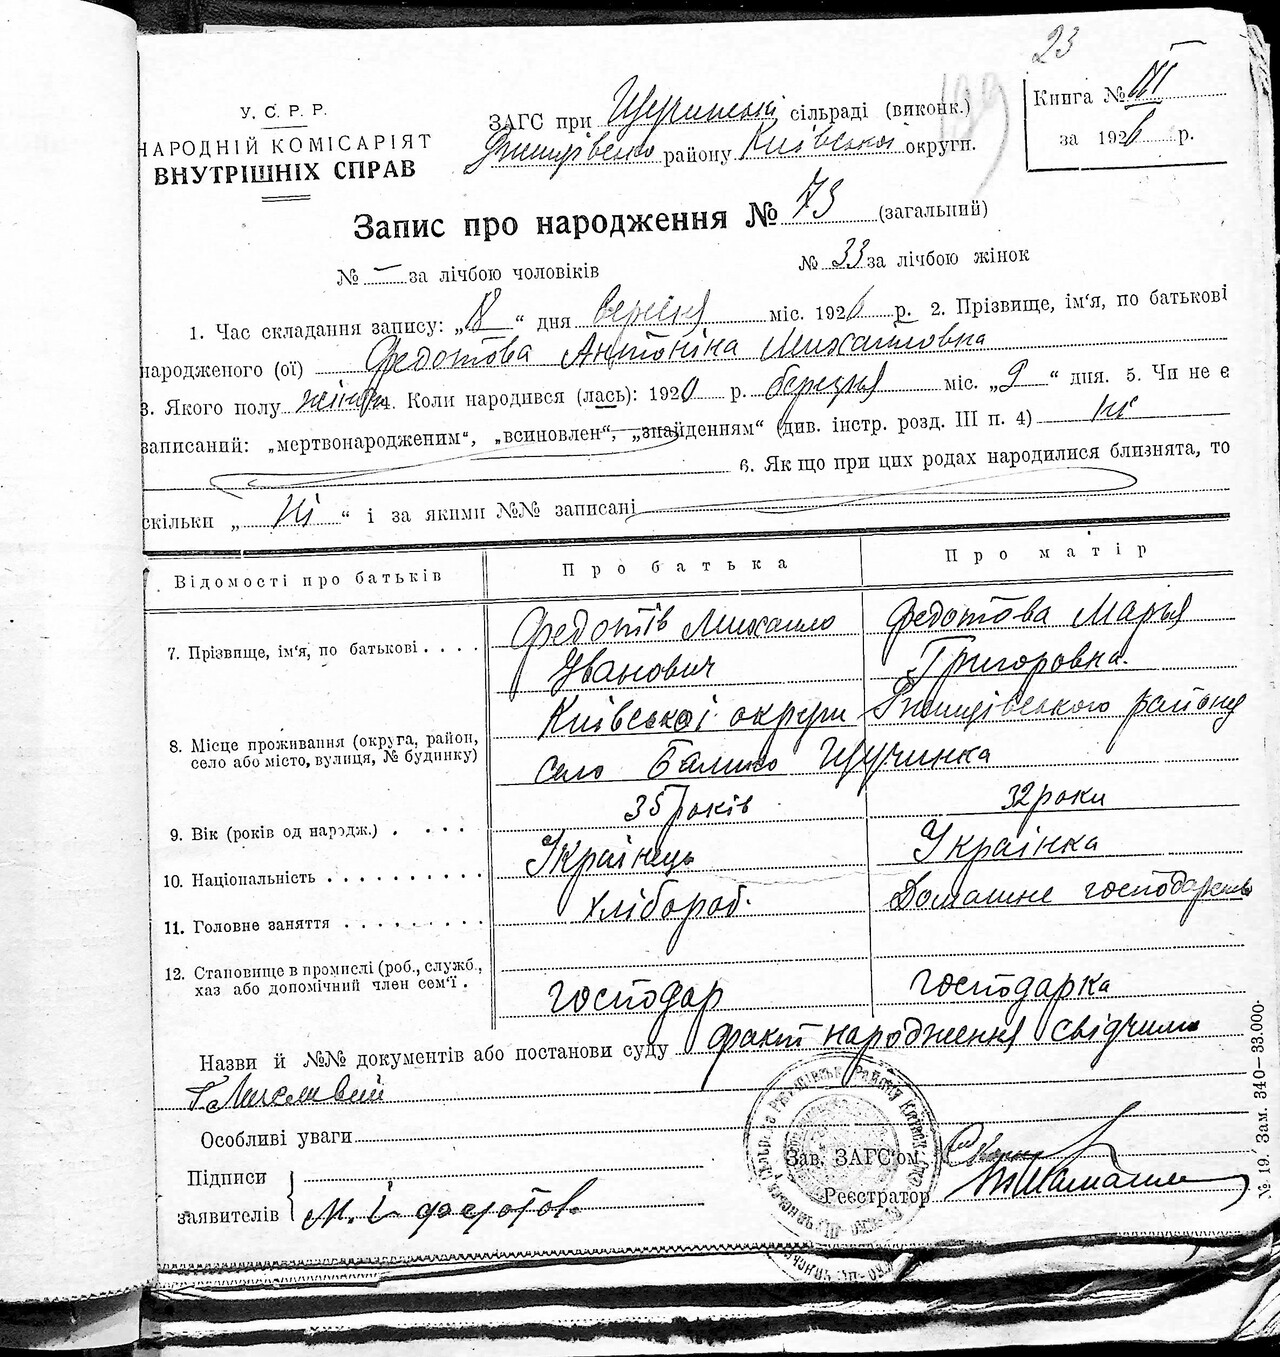 23
129
У. С. Р. Р.
НАРОДНІЙ КОМІСАРІЯТ
ВНУТРІШНІХ СПРАВ
ЗАГС при Щучинській сільраді (виконк.)
Ржищівсько району Київської округи.
Книга № III
за 1926 р.
Запис про народження № 73 (загальний)
№ — за лічбою чоловіків № 33 за лічбою жінок
1. Час складання запису: „18“ дня вересня міс. 1926 р. 2. Прізвище, ім‘я, по батькові
народженого (ої) Федотова Антоніна Михайловна
3. Якого полу жіноч 4. Коли народився (лась): 1920 р. березня міс. „9“ дня. 5. Чи не є
записаний: „мертвонародженим“, „всиновлен“, „знайденям“ (див. інстр. розд. III п. 4) ні
6. Якщо при цих родах народилися близнята, то
скільки „ ні “ і за якими №№ записані
Відомості про батьків Про батька Про матір
7. Прізвище, ім‘я, по батькові . . . . Федотів Михайло Иванович Федотова Марья Григоровна.
8. Місце проживання (округа, район, село або місто, вулиця, № будинку) Київської округи Ржищівського району
село Балико Щучинка
9. Вік (років од народж.) . . . . 35 років 32 роки
10. Національність . . . . . . . . . . Українець Українка
11. Головне заняття . . . . . . . . . хлібороб. Домашнє господарство
12. Становище в промислі (роб., служб., хаз або допомічний член сем‘ї . господар господарка
Назви й №№ документів або постанови суду факт народження свідчили
Особливі уваги
Підписи
заявителів М. І Федотов.
Зав. ЗАГС‘ом
Реєстратор
№ 19. Зам. 340—33.000.